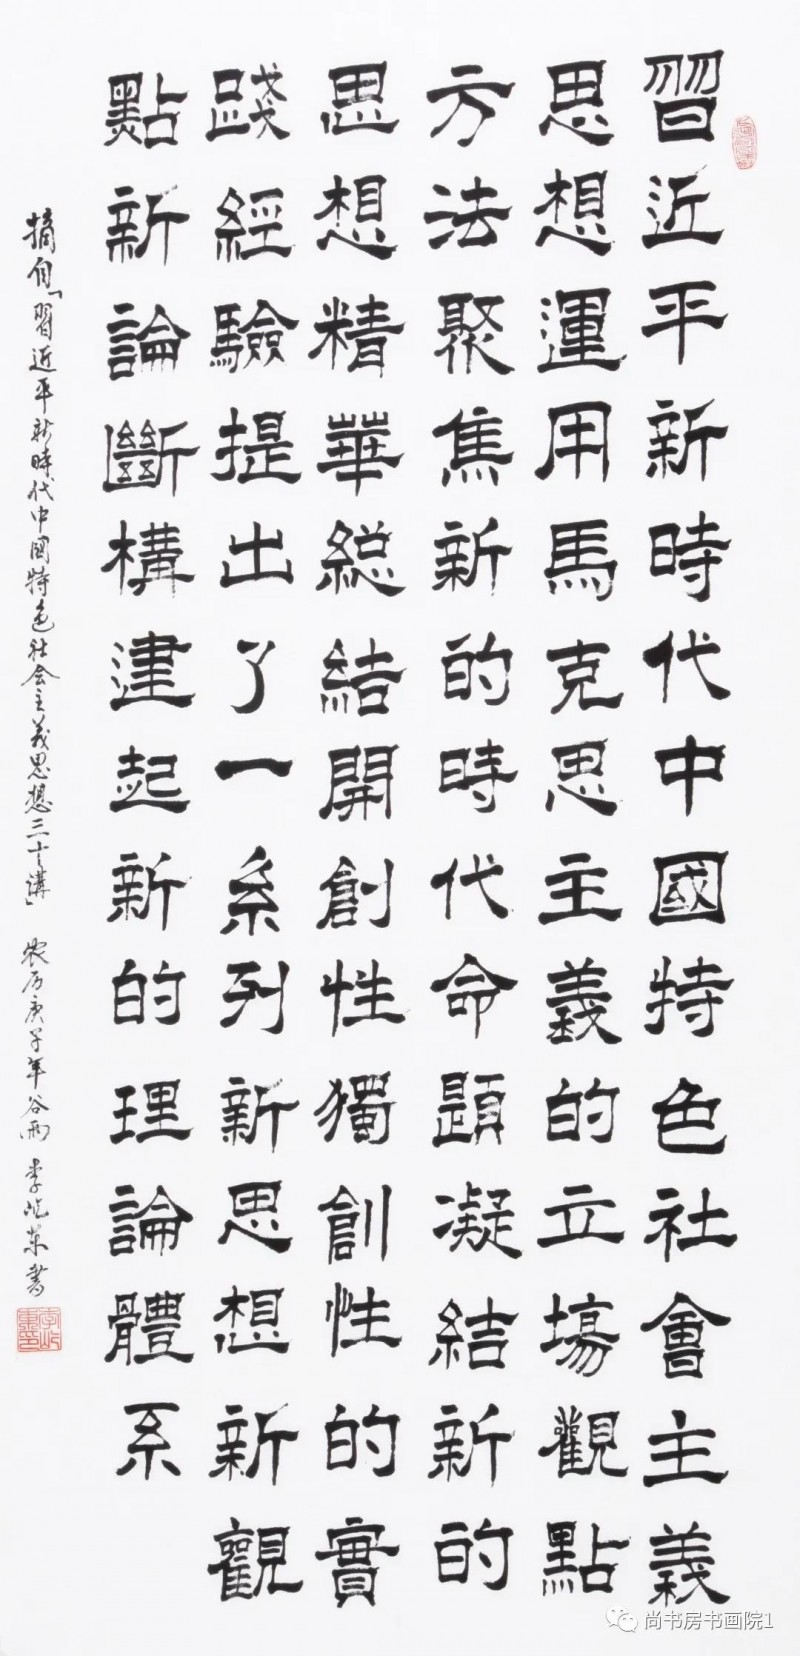 習近平新時代中國特色社會主義
思想運用馬克思主義的立場觀點
方法聚焦新的時代命題凝結新的
思想精華総結開創性獨創性的實
踐經驗提出了一系列新思想新觀
點新論斷構建起新的理論體系
摘自「習近平新時代中国特色社会主义思想三十講」 农历庚子年谷雨 李屹东書
尚书房书画院1